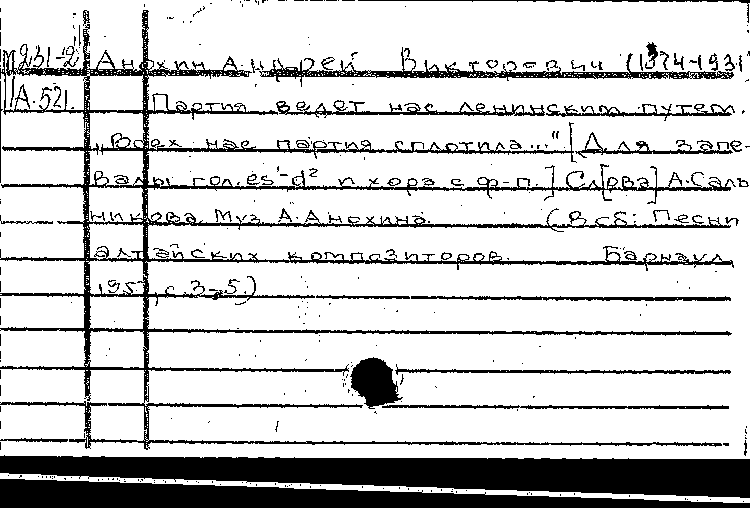 М231-2 Анохин Андрей Викторович (1874-1931
А.521. Партия ведет нас ленинским путем.
„Всех нас партия сплотила..." [Для запе-
валы гол. es¹-d² и хора с ф-п.] Сл[ова] А.Саль
никова Муз А.Анохина. (В сб: Песни
алтайских композиторов. Барнаул,
с.3-5.)